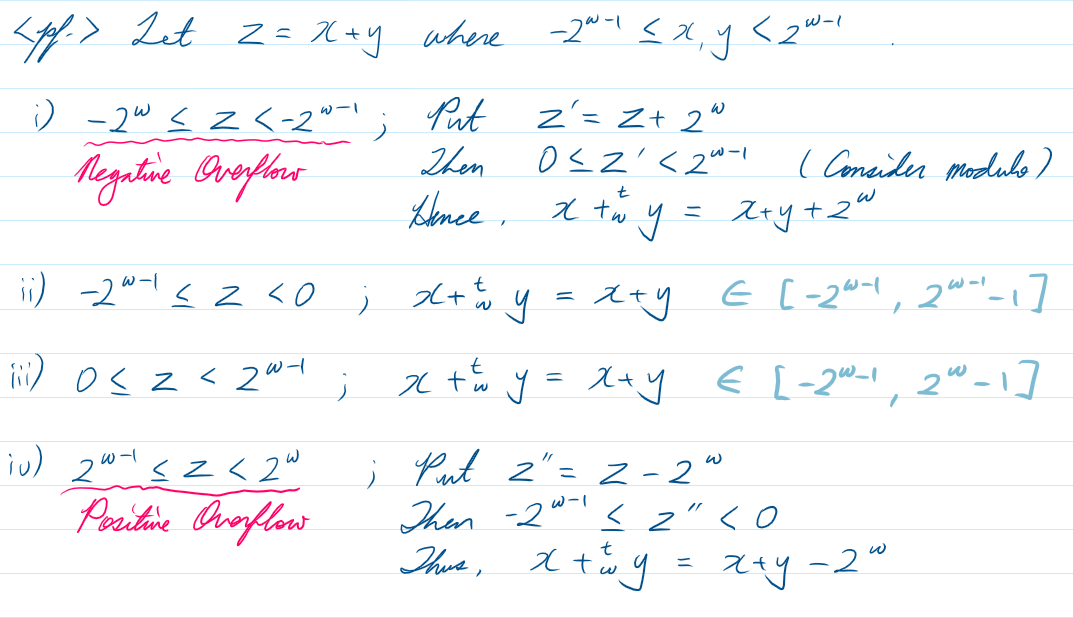 <pf.> Let z = x+y where -2^{w-1} ≤ x, y < 2^{w-1} .
i) -2^w ≤ z < -2^{w-1} ; Put z' = z + 2^w
Negative Overflow Then 0 ≤ z' < 2^{w-1} (Consider modulo)
Hence, x +^t_w y = x+y+2^w
ii) -2^{w-1} ≤ z < 0 ; x +^t_w y = x+y ∈ [-2^{w-1}, 2^{w-1}-1]
iii) 0 ≤ z < 2^{w-1} ; x +^t_w y = x+y ∈ [-2^{w-1}, 2^w-1]
iv) 2^{w-1} ≤ z < 2^w ; Put z'' = z - 2^w
Positive Overflow Then -2^{w-1} ≤ z'' < 0
Thus, x +^t_w y = x+y-2^w